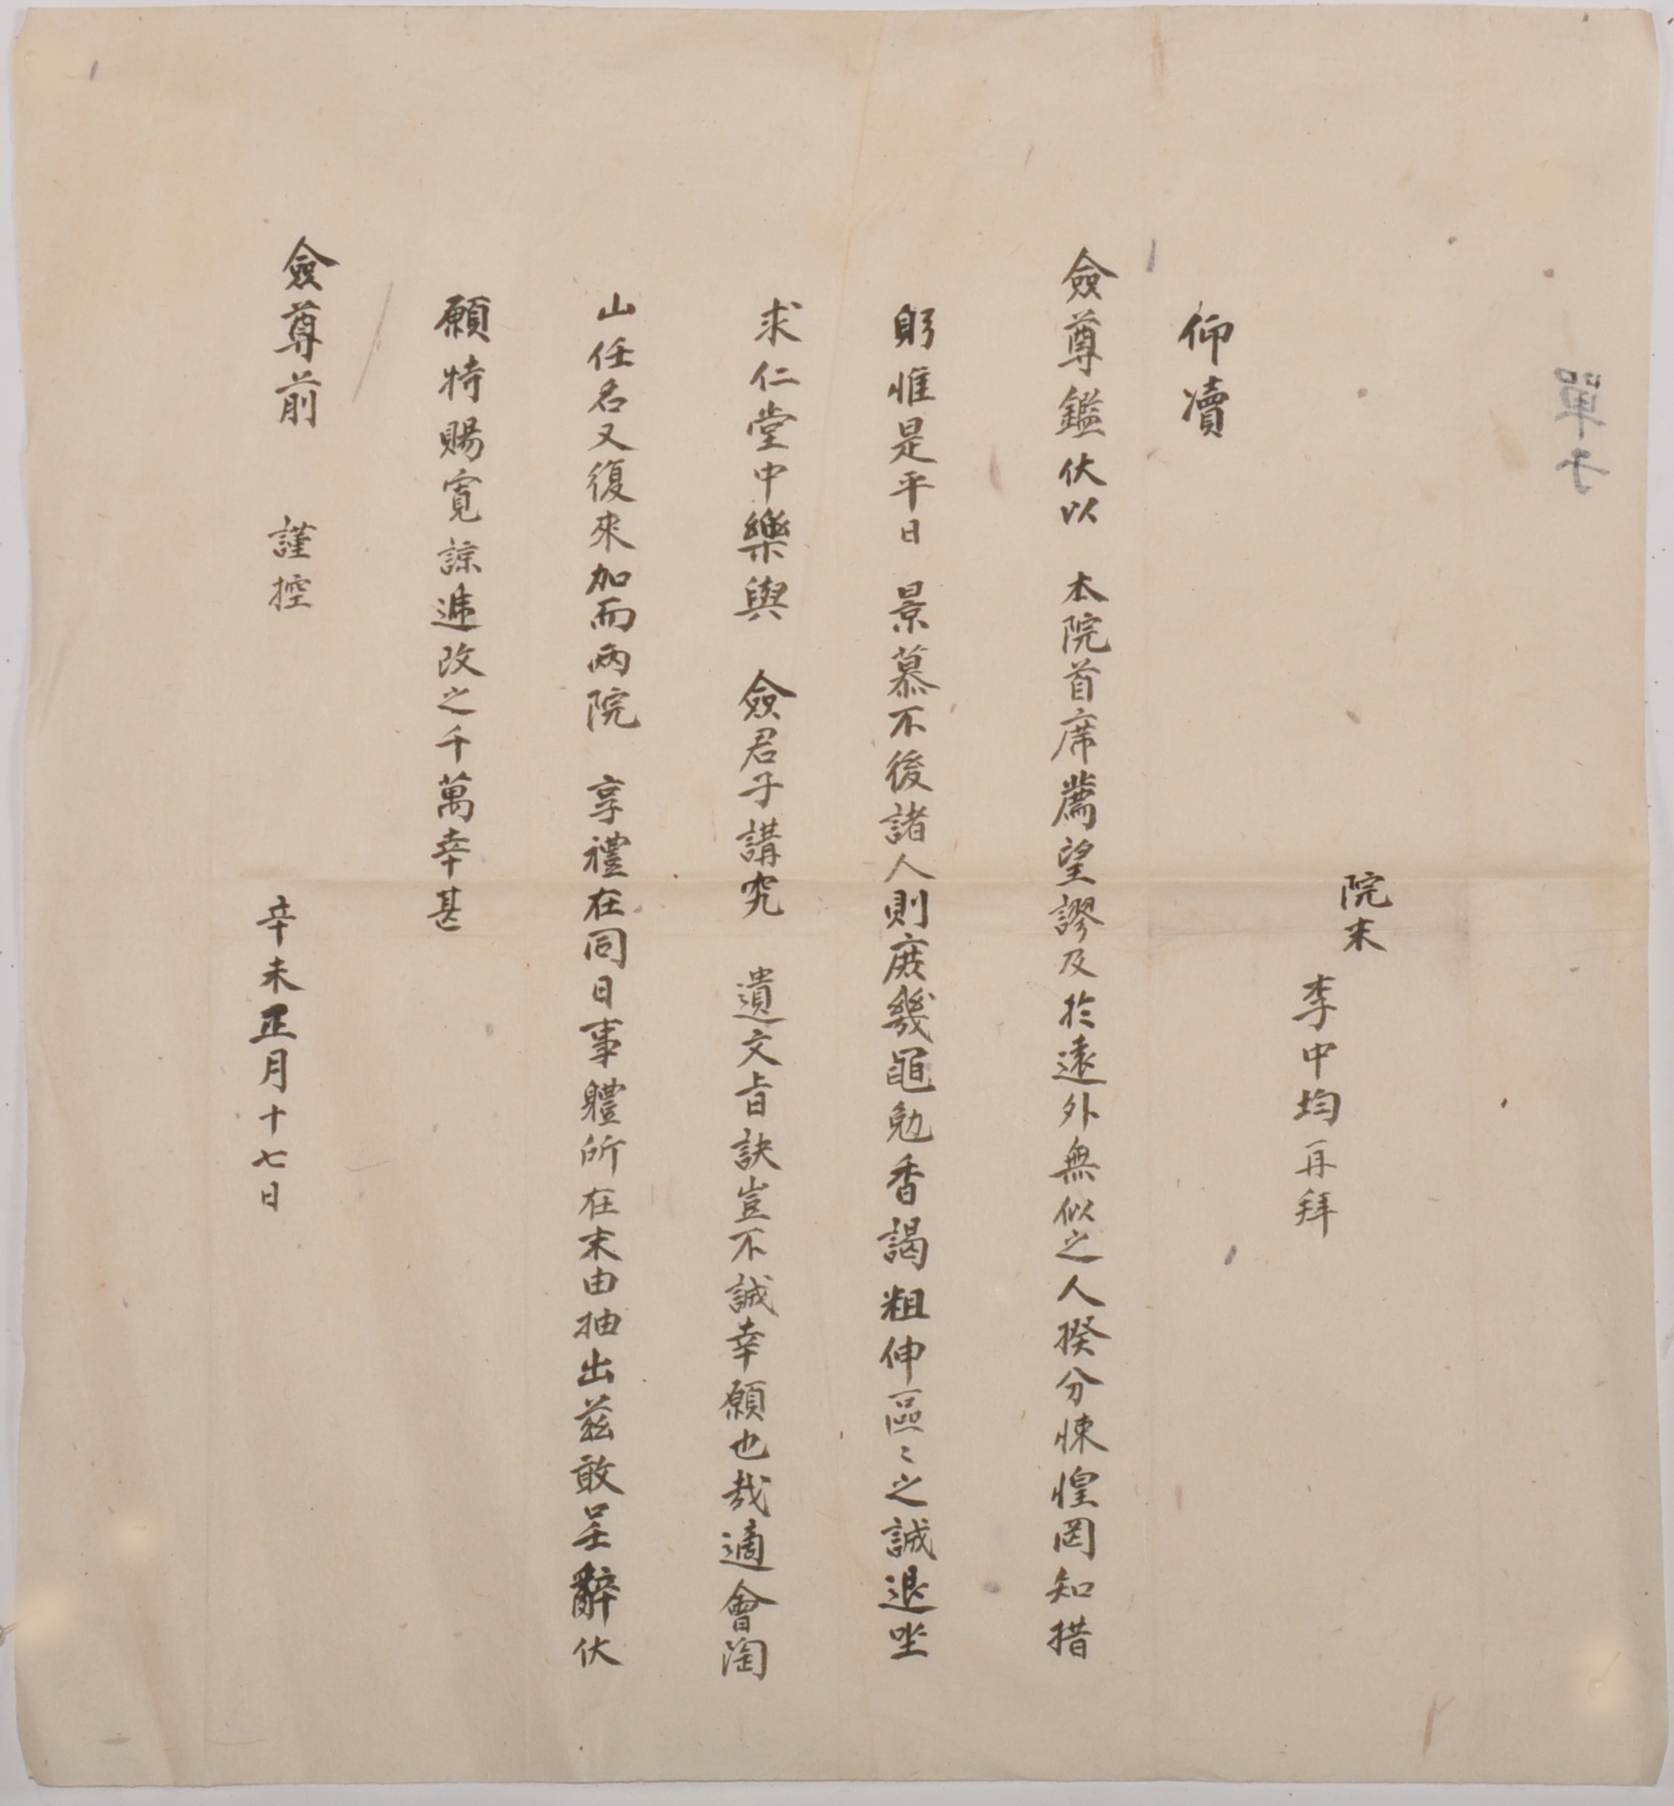 單子
院末
李中均再拜
仰瀆
僉尊鑑伏以 本院首席薦望謬及於遠外無似之人揆分悚惶罔知措
躬惟是平日 景慕不後諸人則庶幾黽勉香謁粗伸區〻之誠退坐
求仁堂中樂與 僉君子講究 遺文旨訣豈不誠幸願也哉適會陶
山任名又復來加而兩院 享禮在同日事軆所在末由抽出玆敢呈辭伏
願特賜寬諒遞改之千萬幸甚
僉尊前 謹控
辛未正月十七日